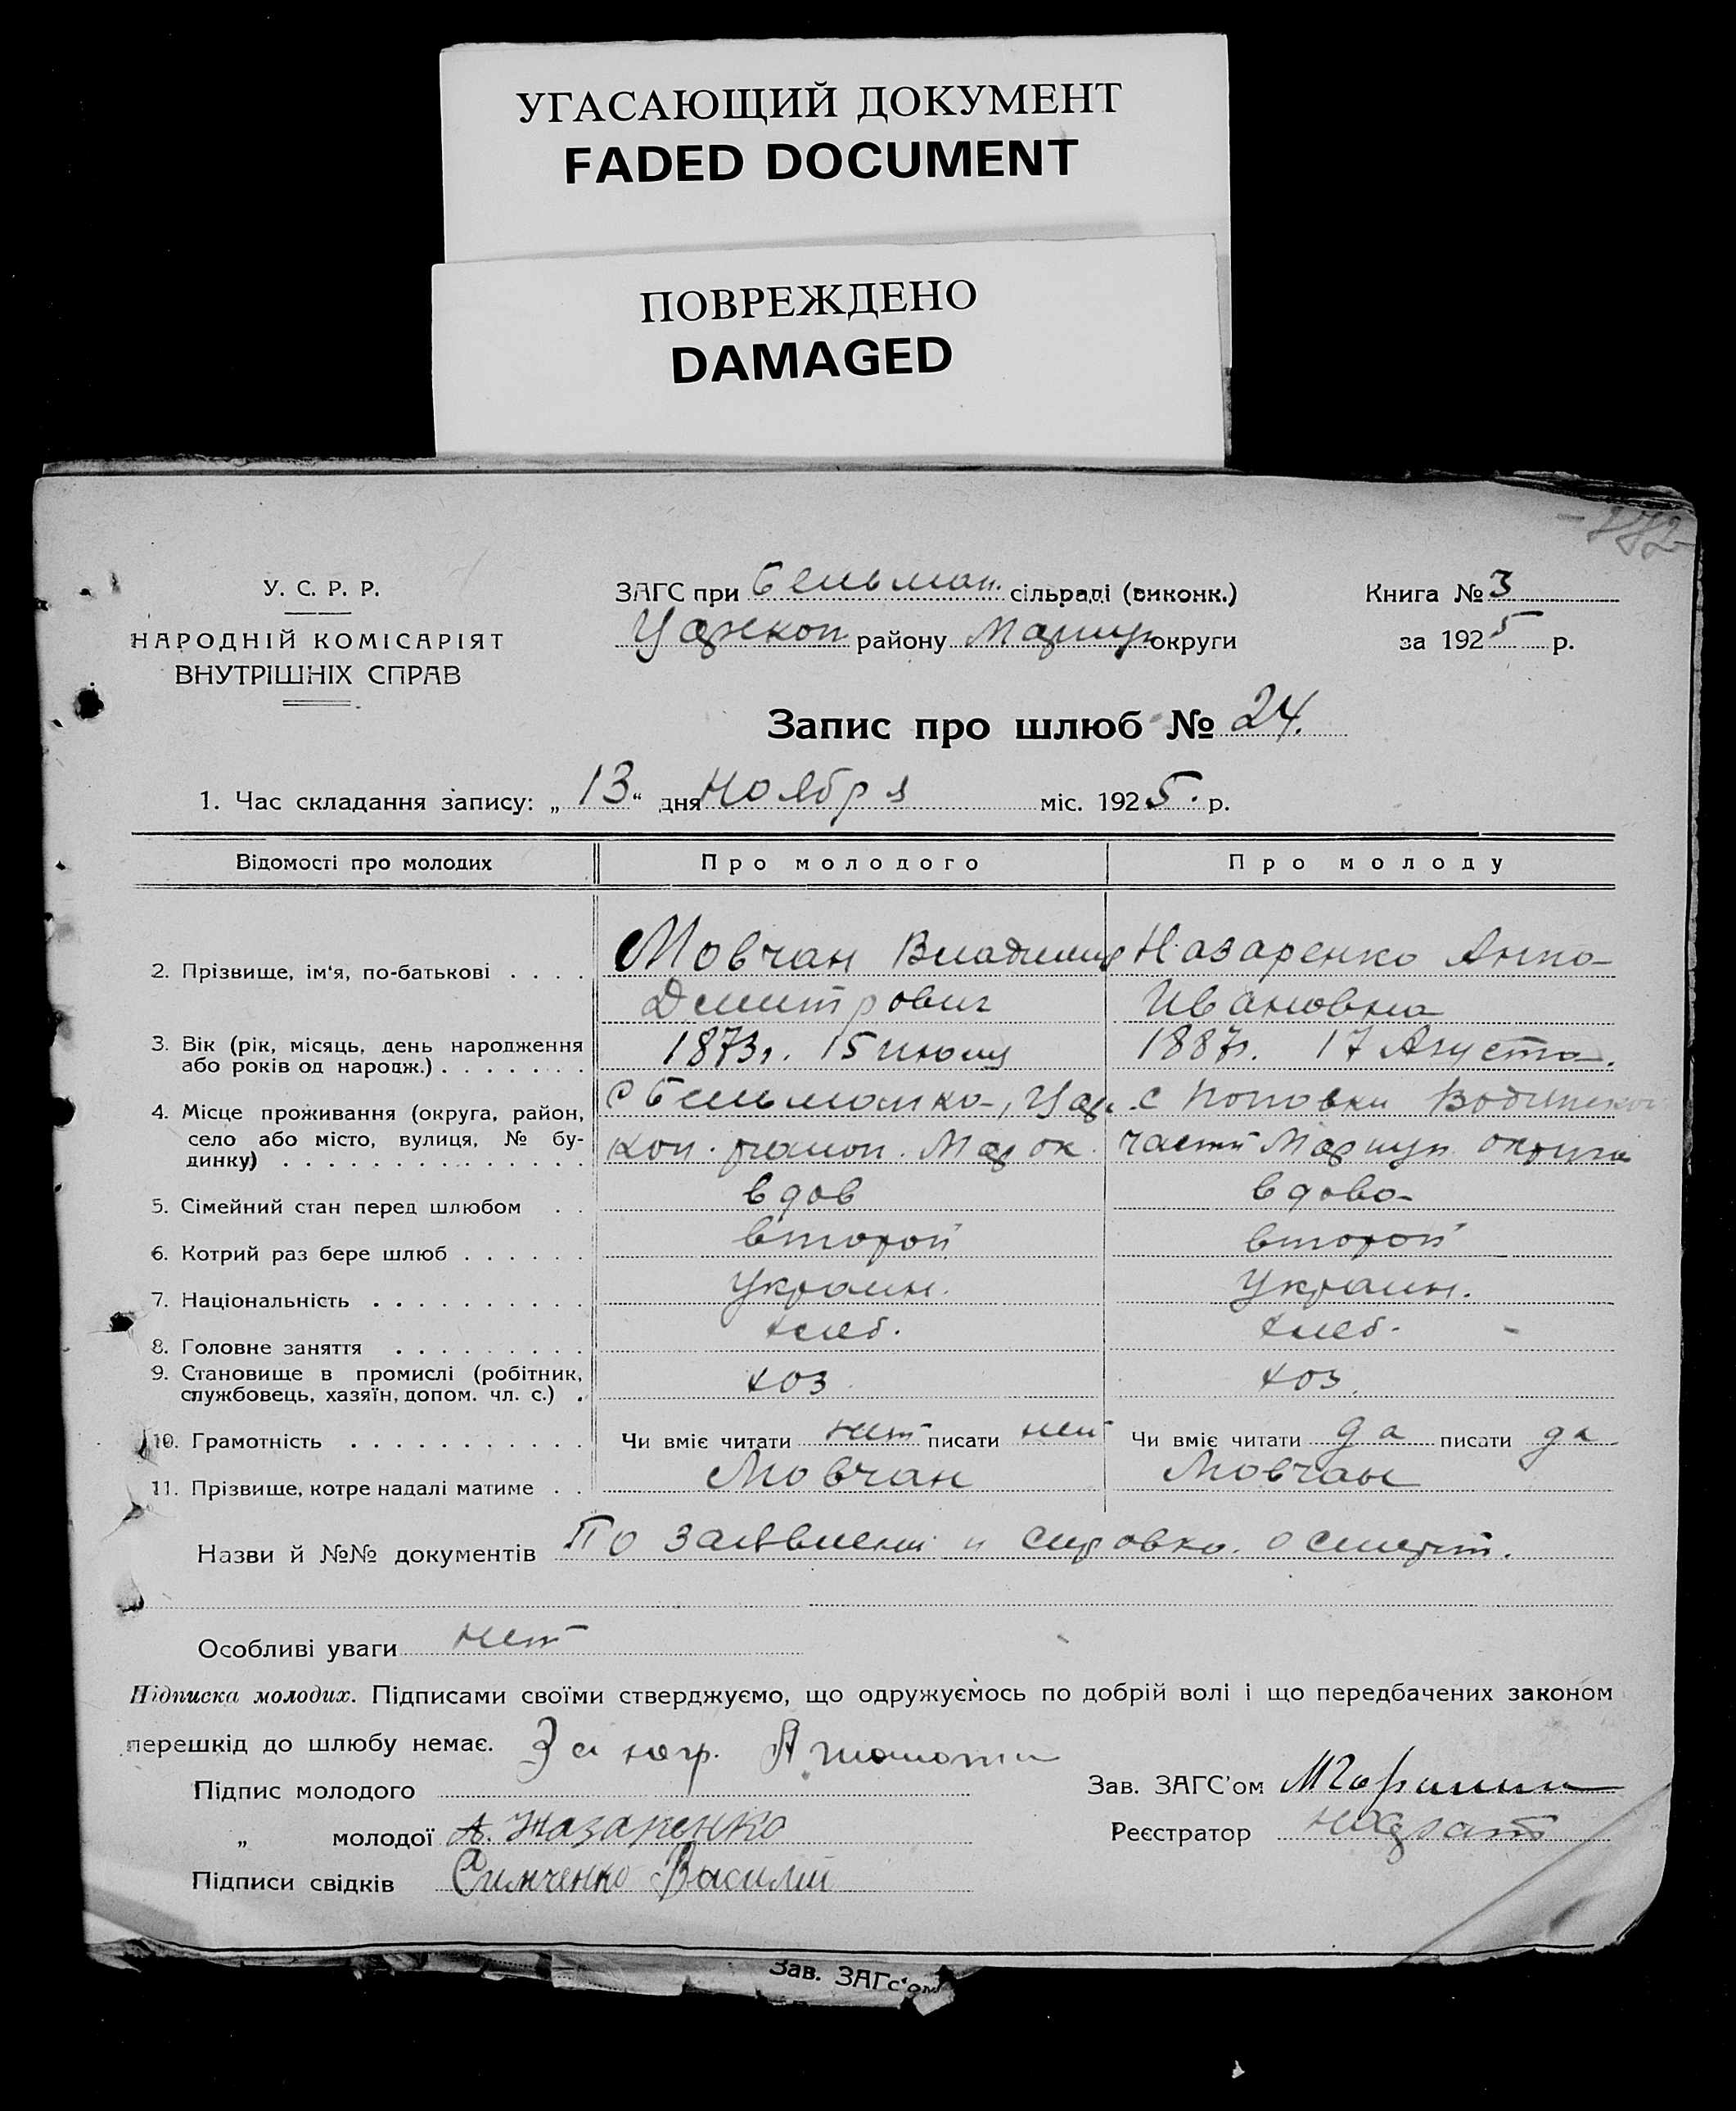 УГАСАЮЩИЙ ДОКУМЕНТ
FADED DOCUMENT
ПОВРЕЖДЕНО
DAMAGED
У. С. Р. Р.
НАРОДНІЙ КОМІСАРІЯТ
ВНУТРІШНІХ СПРАВ
ЗАГС при Бельман. сільраді (виконк.)
Царекоп району Мариуп округи
Книга № 3
за 1925 р.
Запис про шлюб № 24.
1. Час складання запису: „13“ дня Ноября міс. 1925. р.
Відомості про молодих Про молодого Про молоду
2. Прізвище, ім'я, по-батькові . . . . Мовчан Владимир Назаренко Анна
Дмитрович Ивановна
3. Вік (рік, місяць, день народження або років од народж.) . . . . . . . 1873г. 15 июля 1887г. 17 Августа.
4. Місце проживання (округа, район, село або місто, вулиця, № будинку) . . . . . . . . . . . . . . с Бельманка, Цар. с Поповки
коп. район. Мар ок. части Мариуп. округи
5. Сімейний стан перед шлюбом . . вдов вдова
6. Котрий раз бере шлюб . . . . . . второй второй
7. Національність . . . . . . . . . . Украин. Украин.
8. Головне заняття . . . . . . . . . хлеб. хлеб.
9. Становище в промислі (робітник, службовець, хазяїн, допом. чл. с.) . хоз хоз.
10. Грамотність . . . . . . . . . . . Чи вміє читати нет писати нет Чи вміє читати да писати да
11. Прізвище, котре надалі матиме . . Мовчан Мовчан
Назви й №№ документів По заявлени и справка о смерт.
Особливі уваги нет
Підписка молодих. Підписами своїми стверджуємо, що одружуємось по добрій волі і що передбачених законом
перешкід до шлюбу немає. За негр.
Підпис молодого
Зав. ЗАГС'ом
„ молодої А. Назаренко
Реєстратор
Підписи свідків Симченко Василий
Зав. ЗАГс'ом